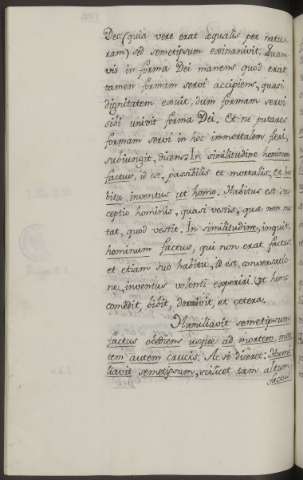 Deo (quia vere erat æqualis per natu-
ram) sed semetipsum exinanivit. Quam-
vis in forma Dei manens quod erat
tamen formam servi accipiens, quasi
dignitatem exuit, dum formam servi
sibi univit forma Dei. Et ne putares
formam servi in hoc immortalem fieri,
subiungit, dicens In similitudine hominum
factus, id est, passibilis et mortalis, et ha-
bitu inventus ut homo. Habitus est sus-
ceptio hominis, quasi vestis, quæ non mu-
tat, quod vestit. In similitudine, inquit,
hominum factus, qui non erat factus
et etiam sub habitu, id est, conversatio-
ne, inventus volenti experiri ut homo
comedit, bibit, dormivit, et cetera.
Humiliavit semetipsum
factus obediens usque ad mortem, mor-
tem autem crucis. Ac si diceret: Humi-
liavit semetipsum, scilicet tam altum